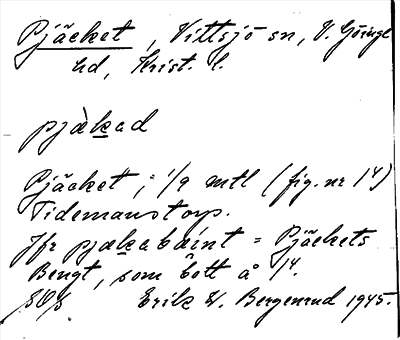 Pjäcket, Vittsjö sn, V. Göinge
hd, Krist. l.
pjäkad
Pjäcket, = 1/9 mtl (fig. nr 14)
Tidemanstorp.
Jfr pjäkabäint = Pjäckets
Bengt, som bott å 14.
Erik W. Bergenrud 1945.